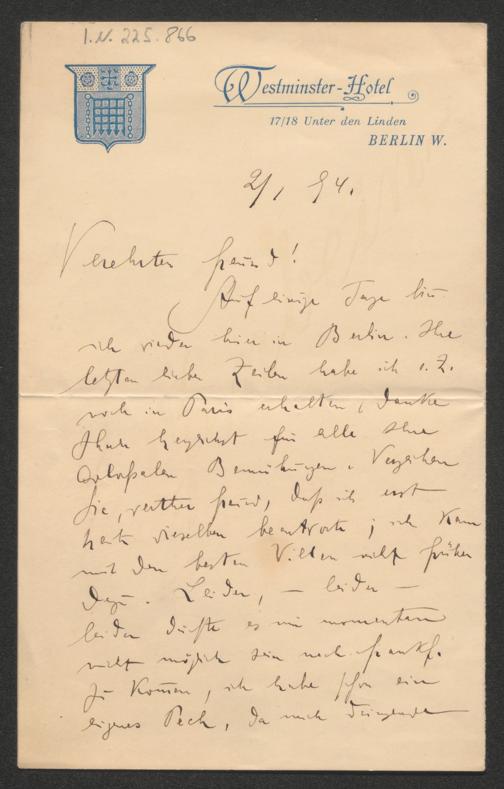 I.N. 225.866
Westminster-Hotel
17/18 Unter den Linden
BERLIN W.
2/1 94.
Verehrter Freund!
Auf einige Tage bin
ich wieder hier in Berlin. Ihre
letzten lieben Zeilen habe ich s. Z.
noch in Paris erhalten, danke
Ihnen herzlichst für alle Ihre
colossalen Bemühungen. Verzeihen
Sie, werther Freund, daß ich erst
heute dieselben beantworte; ich kam
mit dem besten Willen nicht früher
dazu. Leider, – leider –
leider dürfte es mir momentan
nicht möglich sein nach Frankf.
zu kommen, ich habe schon ein
eigenes Pech, da mich dringende